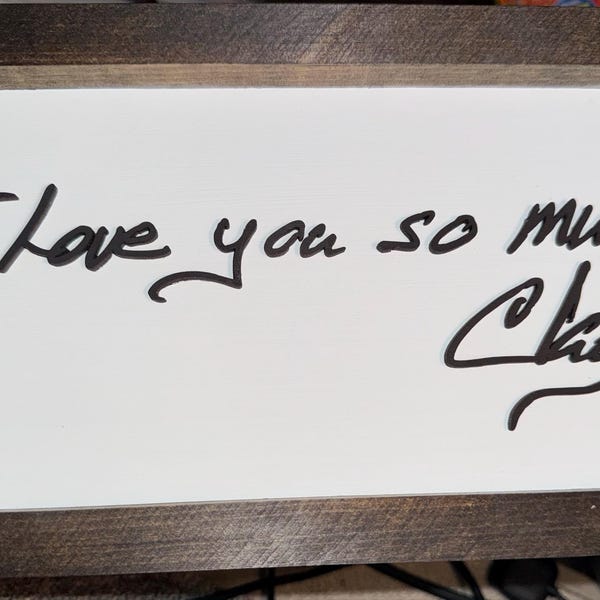 I Love you so mu
Clay